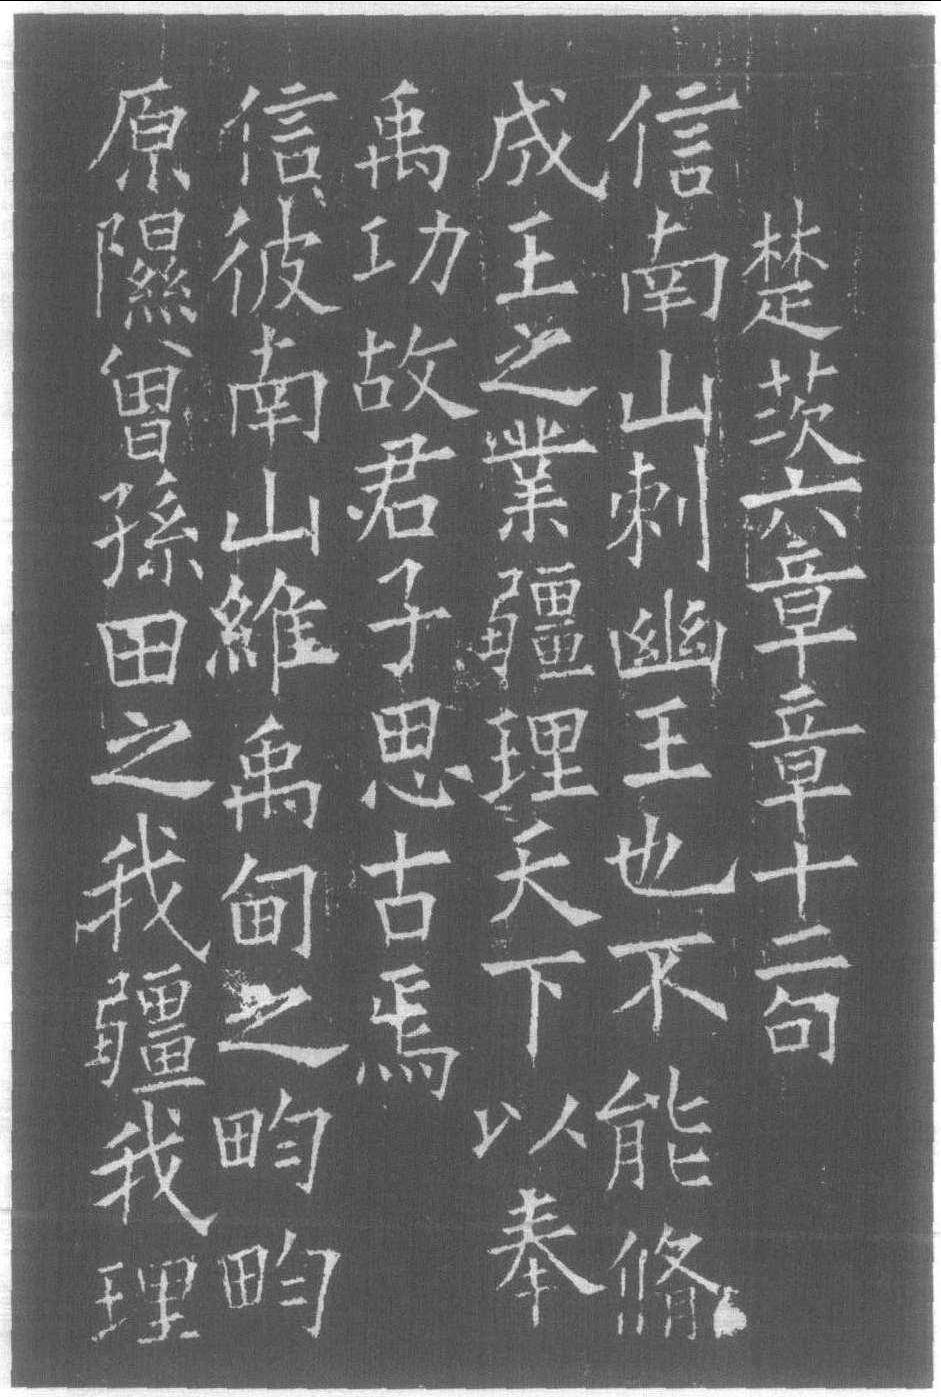 楚茨六章章十二句
信南山刺幽王也不能脩
成王之業疆理天下以奉
禹功故君子思古焉
信彼南山維禹甸之畇畇
原隰曾孫田之我疆我理